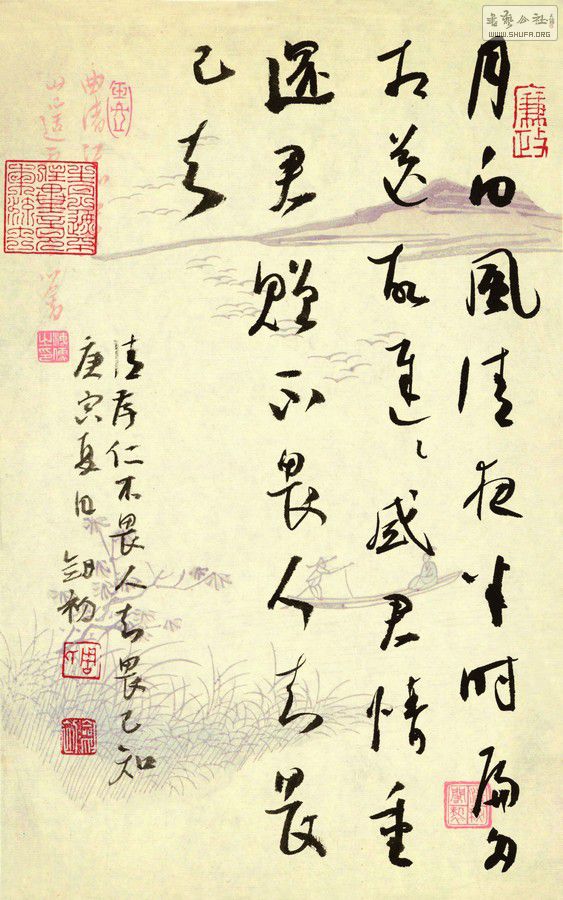 書藝公社
WWW.SHUFA.ORG
廉政
月白風清夜半时扁舟
相送故遲々感君情重
還君贈不畏人知畏
己知
清存仁不畏人知畏己知
庚寅夏日